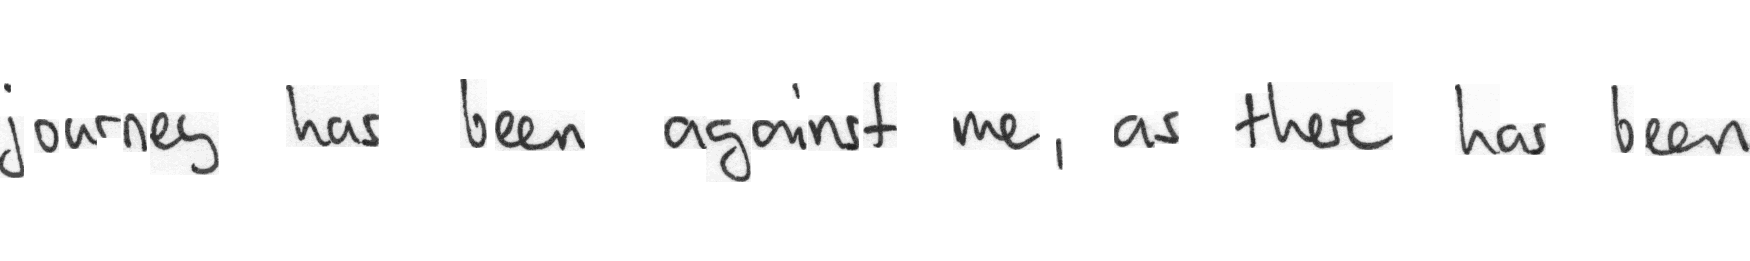 journey has been against me, as there has been